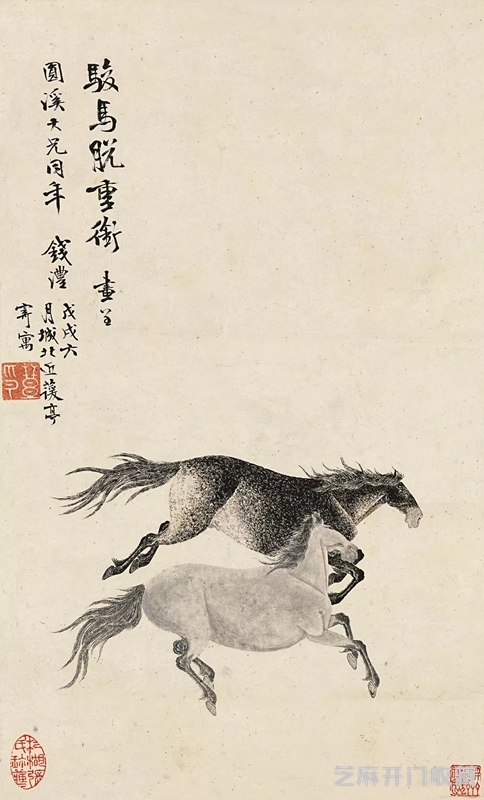 駿馬脫重銜 畫呈
圓溪大兄同年 錢灃
戊戌六
月城北亭
寄寓
芝麻开门收藏